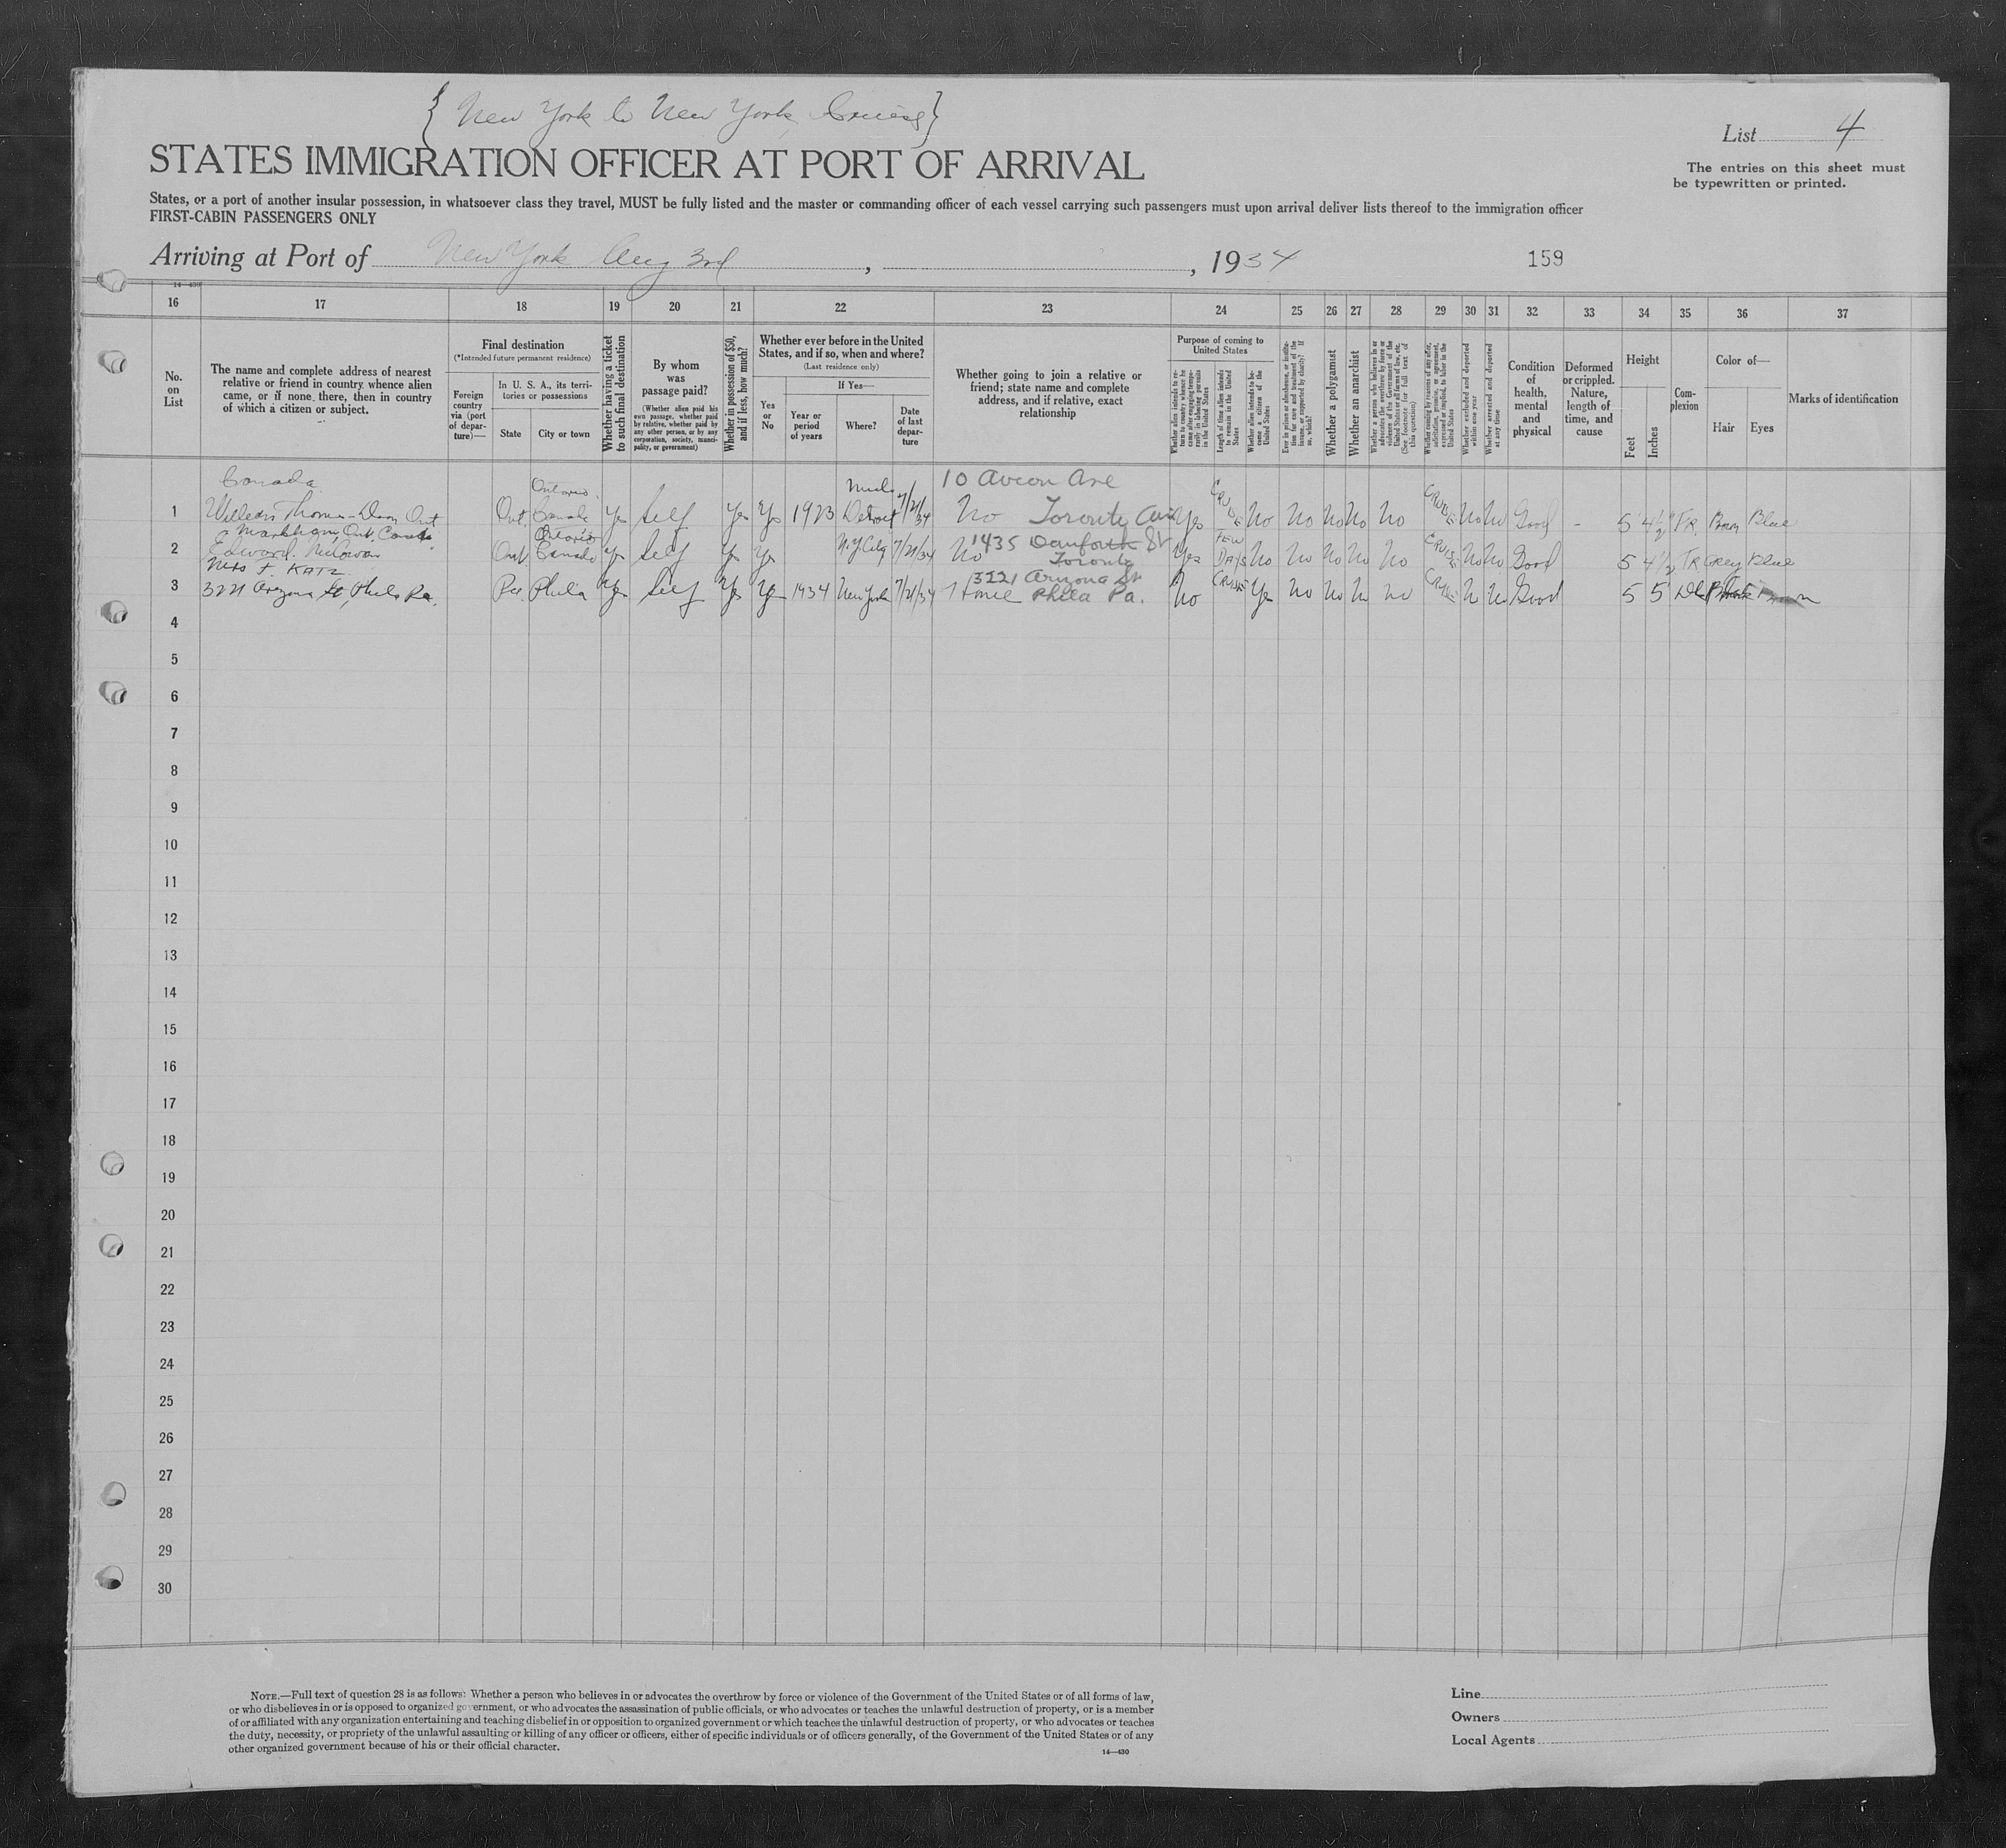 { New York to New York Cruise }
List 4
STATES IMMIGRATION OFFICER AT PORT OF ARRIVAL
The entries on this sheet must
be typewritten or printed.
States, or a port of another insular possession, in whatsoever class they travel, MUST be fully listed and the master or commanding officer of each vessel carrying such passengers must upon arrival deliver lists thereof to the immigration officer
FIRST-CABIN PASSENGERS ONLY
Arriving at Port of New York Aug 3rd , , 1934
159
14—430
16 17 18 19 20 21 22 23 24 25 26 27 28 29 30 31 32 33 34 35 36 37
No. on List
The name and complete address of nearest relative or friend in country whence alien came, or if none there, then in country of which a citizen or subject.
Final destination
(*Intended future permanent residence)
Foreign country via (port of departure)—
In U. S. A., its territories or possessions
State
City or town
Whether having a ticket to such final destination
By whom was passage paid?
(Whether alien paid his own passage, whether paid by relative, whether paid by any other person, or by any corporation, society, municipality, or government)
Whether in possession of $50, and if less, how much?
Whether ever before in the United States, and if so, when and where?
(Last residence only)
If Yes—
Yes or No
Year or period of years
Where?
Date of last departure
Whether going to join a relative or friend; state name and complete address, and if relative, exact relationship
Purpose of coming to United States
Whether alien intends to return to country whence he came after engaging temporarily in laboring pursuits in the United States
Length of time alien intends to remain in the United States
Whether alien intends to become a citizen of the United States
Ever in prison or almshouse, or institution for care and treatment of the insane, or supported by charity? If so, which?
Whether a polygamist
Whether an anarchist
Whether a person who believes in or advocates the overthrow by force or violence of the Government of the United States or all forms of law, etc. (See footnote for full text of this question)
Whether coming by reasons of any offer, solicitation, promise, or agreement, expressed or implied, to labor in the United States
Whether excluded and deported within one year
Whether arrested and deported at any time
Condition of health, mental and physical
Deformed or crippled. Nature, length of time, and cause
Height
Feet
Inches
Complexion
Color of—
Hair
Eyes
Marks of identification
Canada Ontario Mich 10 Avon Ave
1 Ont. Canada Yes Self Yes Yes 1923 Detroit 7/21/34 No Toronto Yes CRUISE No No No No No CRUISE No No Good - 5 4½ FR. Brown Blue
Markham, Ont. Canada Ontario
2 Edward Ont Canada Yes Self Yes Yes N.Y City 7/21/34 No 1435 Danforth St Toronto Yes FEW DAYS No No No No No CRUISE No No Good 5 4½ FR Grey Blue
Mrs F. KATZ 3221 Arizona St
3 3221 Arizona St, Phila Pa. Pa. Phila Yes Self Yes Yes 1934 New York 7/21/34 Home Phila Pa. No CRUISE Yes No No No No CRUISE No No Good 5 5 Dk Black Brown
4
5
6
7
8
9
10
11
12
13
14
15
16
17
18
19
20
21
22
23
24
25
26
27
28
29
30
NOTE.—Full text of question 28 is as follows: Whether a person who believes in or advocates the overthrow by force or violence of the Government of the United States or of all forms of law,
or who disbelieves in or is opposed to organized government, or who advocates the assassination of public officials, or who advocates or teaches the unlawful destruction of property, or is a member
of or affiliated with any organization entertaining and teaching disbelief in or opposition to organized government or which teaches the unlawful destruction of property, or who advocates or teaches
the duty, necessity, or propriety of the unlawful assaulting or killing of any officer or officers, either of specific individuals or of officers generally, of the Government of the United States or of any
other organized government because of his or their official character.
14—430
Line
Owners
Local Agents